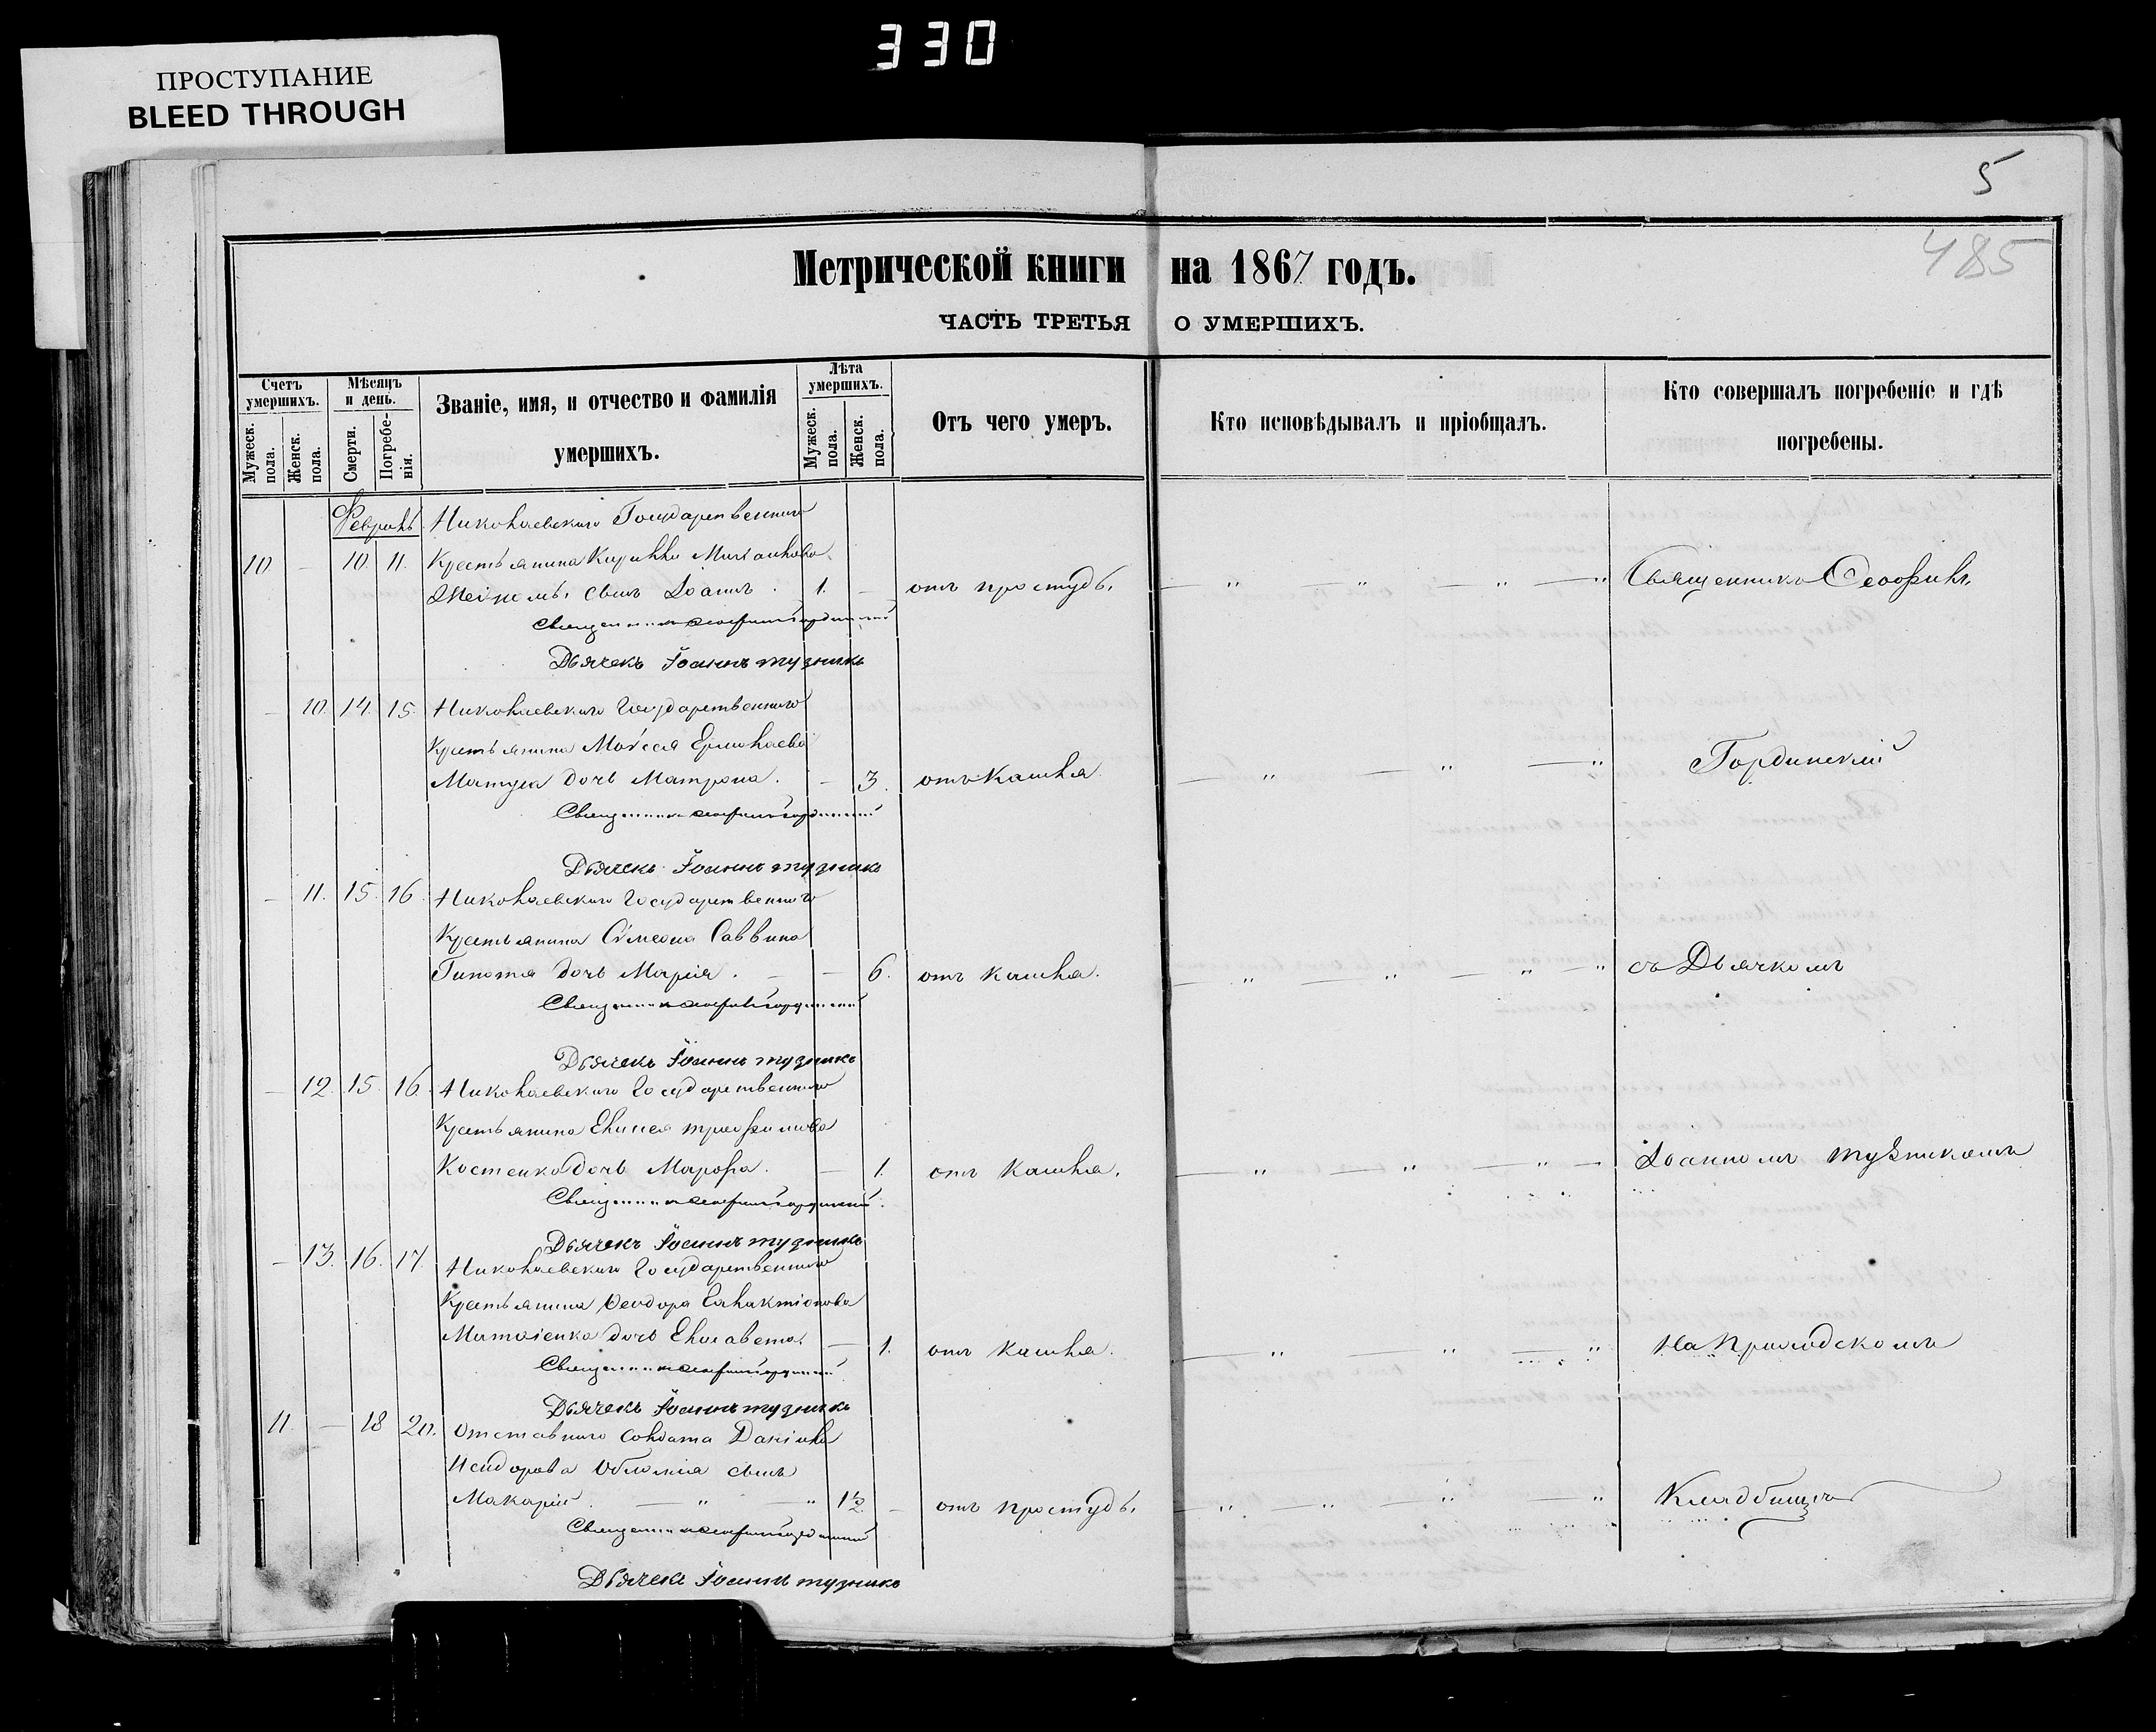 330
ПРОСТУПАНИЕ
BLEED THROUGH
5
485
Метрической книги на 1867 годъ.
ЧАСТЬ ТРЕТЬЯ О УМЕРШИХЪ.
Счетъ умершихъ.
Мужеск. пола.
Женск. пола.
Мѣсяцъ и день.
Смерти.
Погребенія.
Званіе, имя, и отчество и фамилія умершихъ.
Лѣта умершихъ.
Мужеск. пола.
Женск. пола.
Отъ чего умеръ.
Кто исповѣдывалъ и пріобщалъ.
Кто совершалъ погребеніе и гдѣ погребены.
Февраль Николаевского Государственного
10 — 10. 11. Крестьянина Кирилла Михайлова
сынъ Іоаннъ . 1. — отъ простуды. — " — " — " — " Священникъ Ѳеофилъ
Священникъ Ѳеофилъ Гординскій
Дьячекъ Іоаннъ тузникъ
— 10. 14. 15. Николаевского Государственного
Крестьянина Моѵсея Ермолаева
дочь Матрона. — 3. отъ Кашля. — " — " — " Гординскій
Священникъ Ѳеофилъ Гординскій
Дьячекъ Іоаннъ тузникъ
— 11. 15. 16. Николаевского Государственного
Крестьянина Сѵмеона Саввина
дочь Марія . — — 6. отъ кашля. — " — " — " — " съ Дьячкомъ
Священникъ Ѳеофилъ Гординскій
Дьячекъ Іоаннъ тузникъ
— 12. 15. 16. Николаевского Государственного
Крестьянина Елисея трофимова
Костенко дочь Марфа. — 1. отъ Кашля. — " — " — " — Іоанномъ тузникомъ
Священникъ Ѳеофилъ Гординскій
Дьячекъ Іоаннъ тузникъ
— 13. 16. 17. Николаевского Государственного
Крестьянина Ѳеодора Галактіонова
дочь Елисавета. — 1. отъ Кашля. — " — " — " На Приходскомъ
Священникъ Ѳеофилъ Гординскій
Дьячекъ Іоаннъ тузникъ
11. — 18 20. Отставного Солдата Даніила
Исидорова сынъ
Макарій . — " " 1½ — отъ простуды. — " — " — " — " Кладбищѣ
Священникъ Ѳеофилъ Гординскій
Дьячекъ Іоаннъ тузникъ